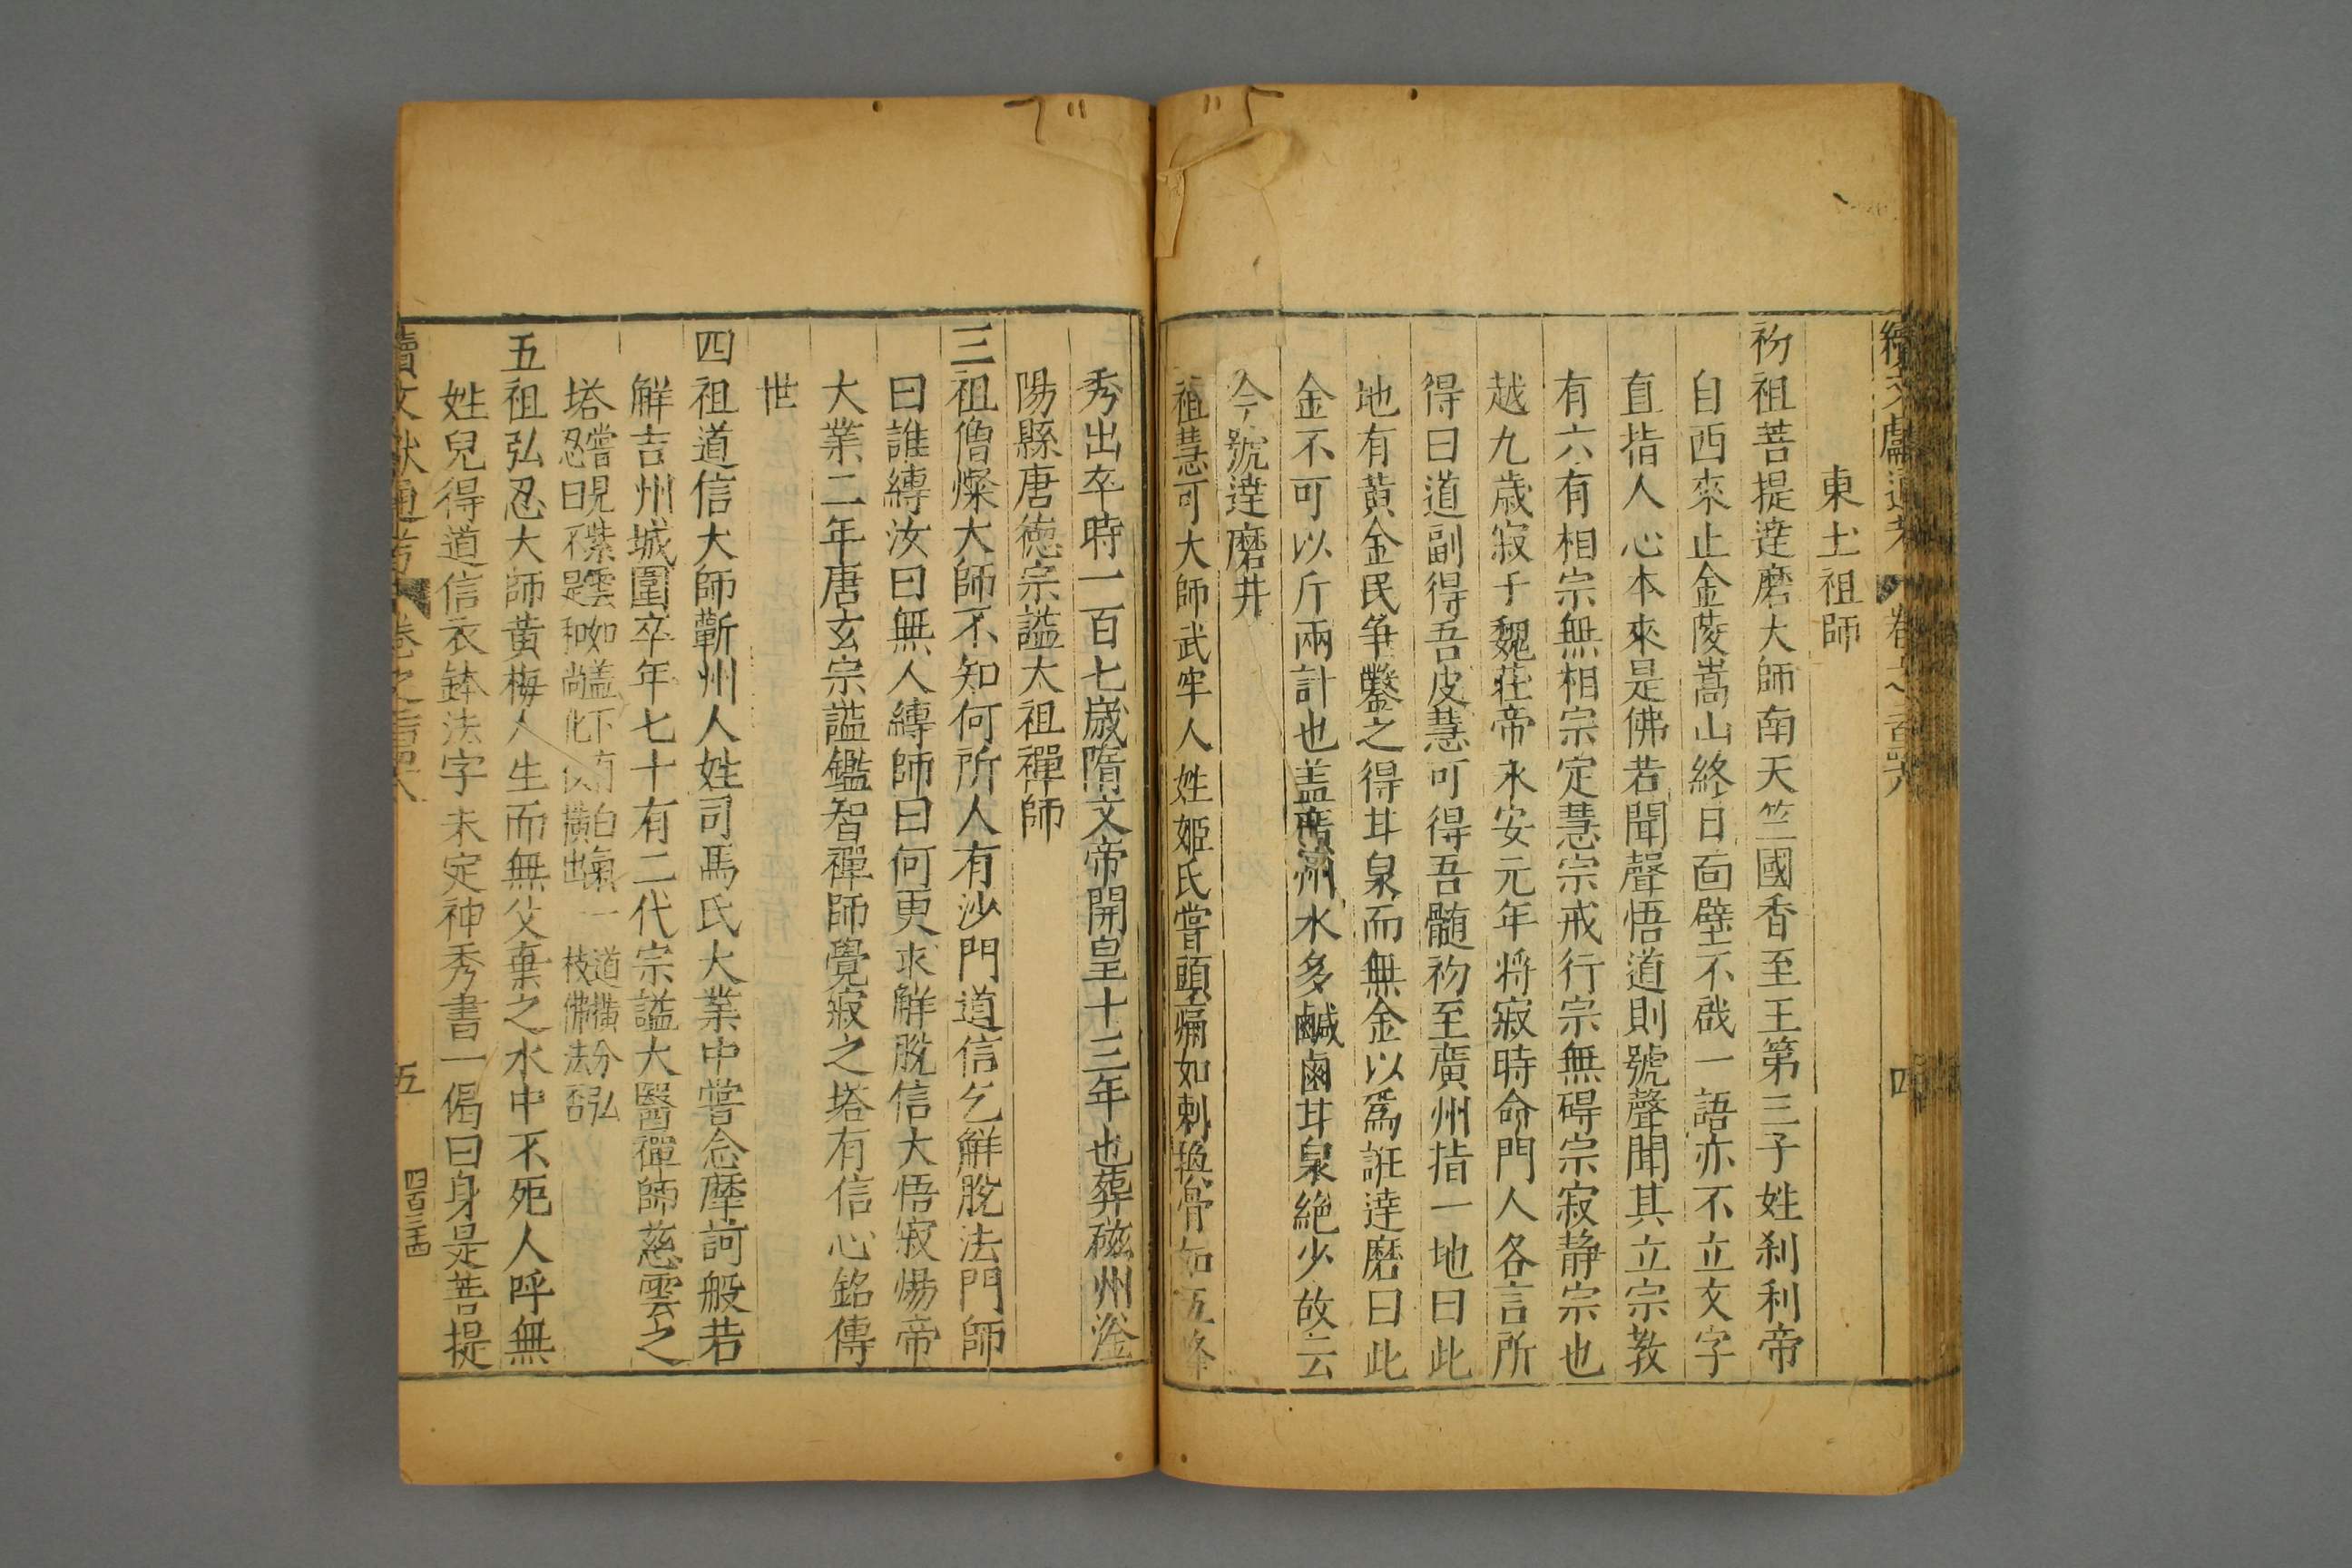 東土祖師
初祖菩提達磨大師南天竺國香至王第三子姓刹利帝
自西來止金陵嵩山終日面壁不戲一語亦不立文字
直指人心本來是佛若聞聲悟道則號聲聞其立宗教
有六有相宗無相宗定慧宗戒行宗無碍宗寂静宗也
越九歲寂于魏莊帝永安元年将寂時命門人各言所
得曰道副得吾皮慧可得吾髓初至廣州指一地曰此
地有黄金民争鑿之得甘泉而無金以爲誑達磨曰此
金不可以斤兩計也盖廣州水多鹹鹵甘泉絶少故云
今號達磨井
祖慧可大師武牢人姓姬氏嘗頭痛如刺換骨如五峰
秀出卒時一百七歲隋文帝開皇十三年也葬磁州滏
陽縣唐德宗謚太祖禪師
三祖僧燦大師不知何所人有沙門道信乞解脫法門師
曰誰縛汝曰無人縛師曰何更求解脫信大悟寂煬帝
大業二年唐玄宗謚鑑智禪師覺寂之塔有信心銘傳
世
四祖道信大師蘄州人姓司馬氏大業中嘗念摩訶般若
解吉州城圍卒年七十有二代宗謚大醫禪師慈雲之
塔嘗見紫雲如盖下有白氣一道橫分弘
忍曰不是和尚化後橫出一枝佛法否
五祖弘忍大師黄梅人生而無父棄之水中不死人呼無
姓兒得道信衣鉢法字未定神秀書一偈曰身是菩提
續文獻通考 卷之
五
四百三十四